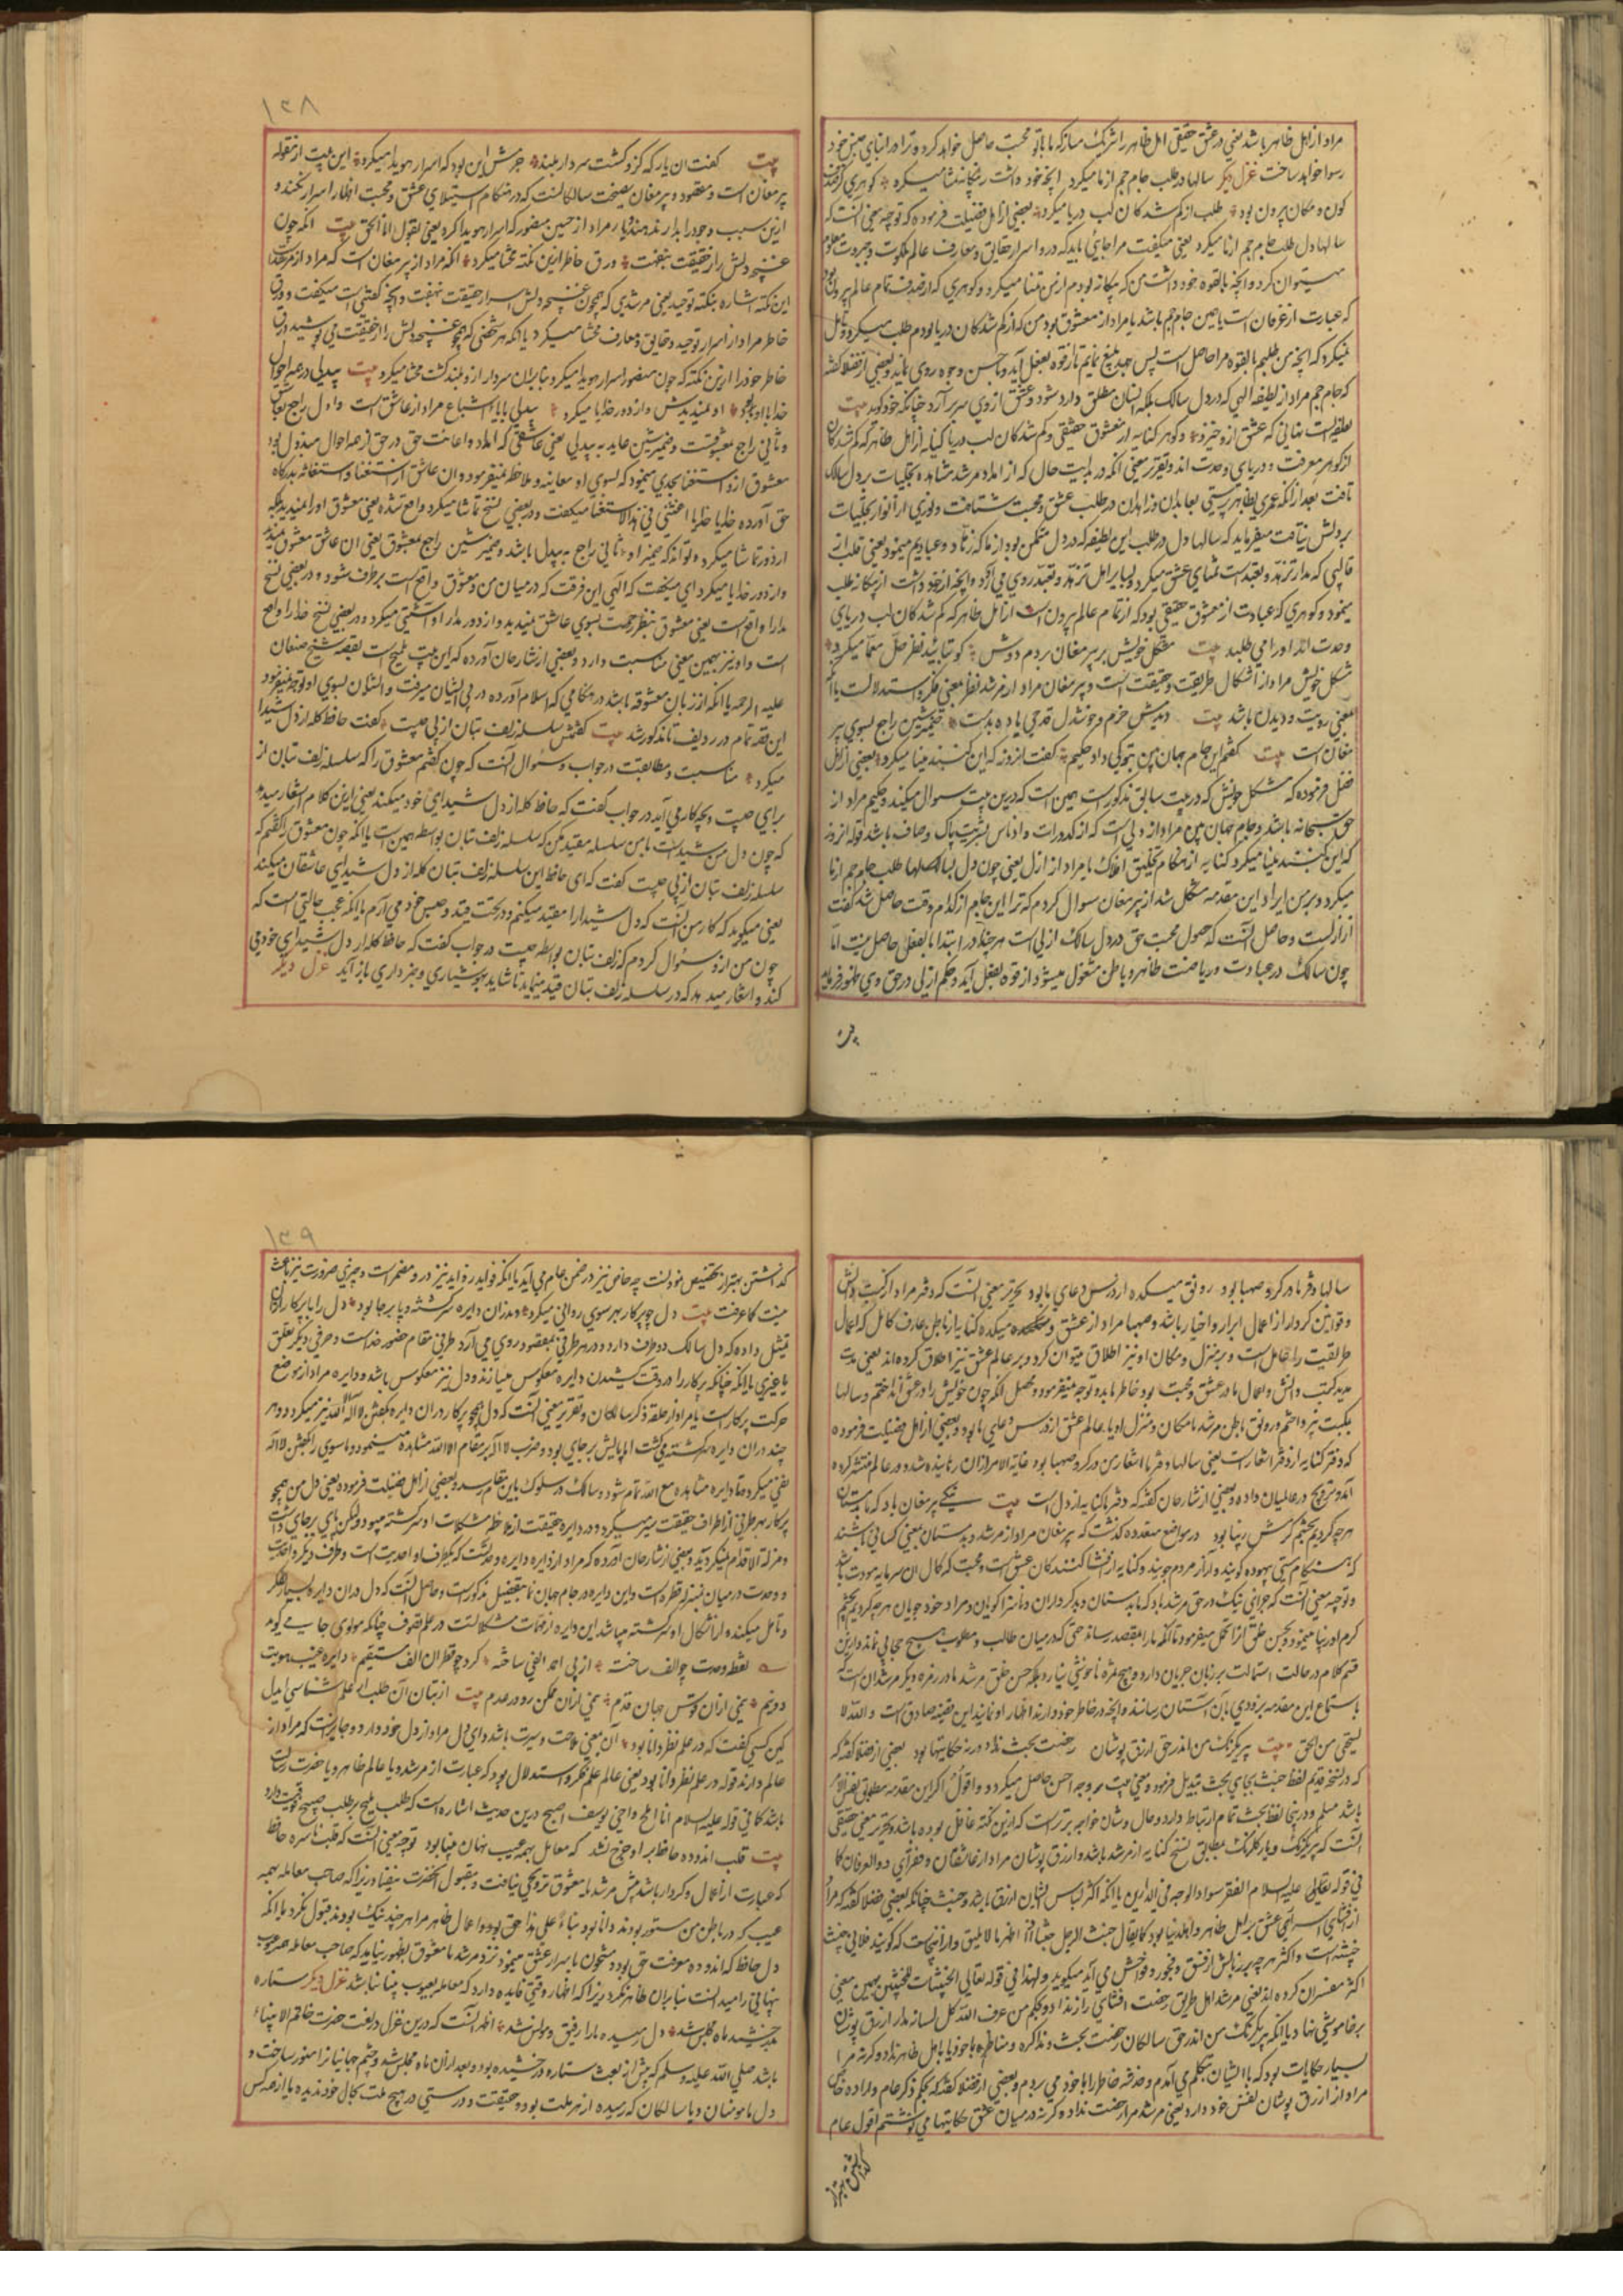 مراد از اهل ظاهر باشد یعنی در عشق حقیقی اهل ظاهر را شریک مساز که ما با تو محبت حاصل خواهد کرد و ترا در ابنای جنس خود
رسوا خواهد ساخت غزل دیگر سالها دل طلب جام جم از ما میکرد آنچه خود داشت ز بیگانه تمنا میکرد گوهری کز صدف
کون و مکان بیرون بود طلب از گم شدگان لب دریا میکرد بعضی از اهل فضیلت فرموده که توجیه معنی آنست که
سالها دل طلب جام جم از ما میکرد یعنی میگفت مرا جایی باید که درو اسرار حقایق و معارف عالم ملکوت و جبروت معلوم
میتوان کرد و آنچه بالقوه خود داشت من که بیگانه بودم از من تمنا میکرد و گوهری که از صدف تمام عالم بیرون بود
که عبارت از عرفان است یا همین جام جم باشد یا مراد از معشوق بود من که از گم شدگان دریا بودم طلب میکرد و تامل
نمیکرد که آنچه من طلبم بالقوه مرا حاصل است پس جهد بلیغ نمایم تا از قوه بفعل آید و باحسن وجوه روی نماید و بعضی از فضلا گفته
که جام جم مراد از لطیفه الهی که در دل سالک بلکه انسان مطلق دارد شود و عشق از وی سر بر آرد چنانکه خود گوید بیت
لطیفه‌ایست نهانی که عشق ازو خیزد و گوهر کنایه از معشوق حقیقی و گم شدگان لب دریا کنایه از اهل ظاهر که گم شدگان
از گوهر معرفت و دریای وحدت اند و تقریر معنی آنکه در بدایت حال که از امداد مرشد مشاهده تجلیات بر دل سالک
تافت بعد از آنکه عمری بظاهر پرستی بعابدان و زاهدان در طلب عشق و محبت شتافت و نوری از انوار تجلیات
بر دلش نیافت میفرماید که سالها دل در طلب این لطیفه که در دل متمکن بود از ما که زهاد و عبادیم مینمود یعنی قلب از
قالبی که مدار تزهد و تعبد است تمنای عشق میکرد و بسیار اهل تزهد و تعبد روی می آورد و آنچه از خود داشت از بیگانه طلب
مینمود و گوهری که عبارت از معشوق حقیقی بود که از تمام عالم بیرون است از اهل ظاهر که گم شدگان لب دریای
وحدت اند او را می طلبد بیت مشکل خویش بر پیر مغان بردم دوش کو بتایید نظر حل معما میکرد
مشکل خویش مراد از اشکال طریقت و حقیقت است و پیر مغان مراد از مرشد نظر بمعنی فکر و استدلالست یا
بمعنی رویت و دیدن باشد بیت دیدمش خرم و خوشدل قدحی باده بدست ضمیر شین راجع بسوی پیر
مغان است بیت گفتم این جام جهان بین بتو کی داد حکیم گفت آنروز که این گنبد مینا میکرد بعضی از اهل
فضل فرموده که مشکل خویش که در بیت سابق مذکور است همین است که درین بیت سوال میکند و حکیم مراد از
حق سبحانه باشد و جام جهان بین مراد از دلی است که از کدورات و ادناس بشریت پاک و صاف باشد قوله آنروز
که این گنبد مینا میکرد کنایه از هنگام تخلیق افلاک یا مراد از ازل یعنی چون دل سالها طلب جام جم از ما
میکرد و برین ایراد این مقدمه مشکل شد از پیر مغان سوال کردم که ترا این جام از کدام وقت حاصل شد گفت
از ازلست و حاصل آنست که حصول محبت حق در دل سالک ازلی است هر چند در ابتدا بالفعل حاصل نیست اما
چون سالک در عبادت و ریاضت ظاهر و باطن مشغول میشود از قوه بفعل آید و حکم ازلی در حق وی ظهور فرماید
بیت
۱۳۸
بیت گفت آن یار کزو گشت سر دار بلند جرمش این بود که اسرار هویدا میکرد این بیت از مقوله
پیر مغان است و مقصود پیر مغان نصیحت سالکانست که در هنگام استیلای عشق و محبت اظهار اسرار نکنند و
ازین سبب وجود را بدار ندهند و یار مراد از حسین منصور که اسرار هویدا کرد یعنی بقول انا الحق بیت آنکه چون
غنچه دلش راز حقیقت بنهفت ورق خاطر ازین نکته محشا میکرد آنکه مراد از پیر مغان است که مراد از مرشد
این نکته اشاره بنکته توحید یعنی مرشدی که همچون غنچه دلش اسرار حقیقت نهفت و آنچه گفتنی است میگفت و ورق
خاطر مراد از اسرار توحید و حقایق و معارف محشا میکرد یا آنکه هر شخصی که همچو غنچه دلش راز حقیقت می پوشید ورق
خاطر خود را ازین نکته که چون منصور اسرار هویدا میکرد بنابران سر دار ازو بلند گشت محشا میکرد بیت بیدلی در همه احوال
خدا با او بود او نمیدیدش و از دور خدایا میکرد بیدلی بیای اشباع مراد از عاشق است و اول راجع بعاشق
و ثانی راجع بمعشوقست و ضمیر شین عاید به بیدلی یعنی عاشقی که امداد و اعانت حق در حق او همه احوال مبذول بود
معشوق ازو استغنا بحدی مینمود که بسوی او معاینه و ملاحظه نمیفرمود و آن عاشق از استغنا و استغاثه بدرگاه
حق آورده خدایا خدایا اغثنی فی هذا الاستغنا میگفت و در بعضی نسخ تماشا میکرد واقع شده یعنی معشوق او را نمیدید بلکه
از دور تماشا میکرد و تواند که ضمیر او ثانی راجع به بیدل باشد و ضمیر شین راجع بمعشوق یعنی آن عاشق معشوق نمیدید
و از دور خدایا میکرد ای میگفت که الهی این فرقت که در میان من و معشوق واقع است برطرف شود و در بعضی نسخ
مدارا واقع است یعنی معشوق بنظر رحمت بسوی عاشق نمیدید و از دور مدارا و آشتی میکرد و در بعضی نسخ خدا را واقع
است و او نیز بهمین معنی مناسبت دارد و بعضی از شارحان آورده که این بیت تلمیح است بقصه شیخ صنعان
علیه الرحمه یا آنکه از زبان معشوقه باشد در هنگامی که اسلام آورده در پی ایشان میرفت و ایشان بسوی او توجه نمیفرمود
این قصه تمام در ردیف تا مذکور شد بیت گفتمش سلسله زلف بتان از پی چیست گفت حافظ گله از دل شیدا
میکرد مناسبت و مطابقت در جواب و سئوال آنست که چون گفتم معشوق را که سلسله زلف بتان از
برای چیست و بچه کار می آید در جواب گفت که حافظ گله از دل شیدای خود میکند یعنی ازین کلام اشعار میدهد
که چون دل من شیداست باین سلسله مقید مکن که سلسله زلف بتان بواسطه همین است یا آنکه چون معشوق را گفتم که
سلسله زلف بتان از پی چیست گفت که ای حافظ این سلسله زلف بتان گله از دل شیدای عاشقان میکند
یعنی میگوید که کار من آنست که دل شیدا را مقید میکنم و در تحت قید و حبس خود می آرم یا آنکه عجب حالتی است که
چون من ازو سئوال کردم که زلف بتان بواسطه چیست در جواب گفت که حافظ گله از دل شیدای خود می
کند و اشعار میدهد که در سلسله زلف بتان قید مینماید تا شاید بهوشیاری و خبرداری باز آید غزل دیگر
سالها دفتر ما در گرو صهبا بود رونق میکده از درس و دعای ما بود تحریر معنی آنست که دفتر مراد از کتب دانش
و قوانین کردار از اعمال ابرار و اخیار باشد و صهبا مراد از عشق و میکده کنایه از باطن عارف کامل که اعمال
طریقت را حامل است و بر منزل و مکان او نیز اطلاق میتوان کرد و بر عالم عشق نیز اطلاق کرده اند یعنی مدت
مدید کتب دانش و اعمال ما در عشق و محبت بود خاطر ما بدو توجه نمیفرمود و محصل آنکه چون خویش را در عشق انداختم و سالها
بکسب پرداختم و رونق باطن مرشد ما مکان و منزل او یا عالم عشق از درس و دعای ما بود و بعضی از اهل فضیلت فرموده
که دفتر کنایه از دفتر اشعار است یعنی سالها دفتر ما اشعار من در گرو صهبا بود غایة الامر ازان رهانیده شد و در عالم منتشر کرده
آمد و ترویج در عالمیان داده و بعضی از شارحان گفته که دفتر ما کنایه از دل است بیت نیکی پیر مغان باد که ما بدمستان
هر چه کردیم بچشم کرمش زیبا بود در مواضع متعدده گذشت که پیر مغان مراد از مرشد و بدمستان بمعنی کسانی اشند
که هنگام مستی بیهوده گویند و از آزار مردم جویند و کنایه از افشا کنندگان عشق است و محبت که کمال آن سرمایه مودت باشد
و توجیه معنی آنست که جزای نیک در حق مرشد باد که ما بدمستان و بدکرداران و ناسزا گویان و مراد خود جویان هر چه کردیم بچشم
کرم او زیبا مینمود و بحسن خلق آنرا تحمل میفرمود تا آنکه ما را بمقصد رساند حتی که در میان طالب و مطلوب هیچ حجابی نماند و ازین
قسم کلام در حالت استمالت بر زبان جریان دارد و هیچ ثمره ناخوشی نیارد بلکه حسن خلق مرشد ما در زمره دیگر مرشدان است که
باستماع این مقدمه بزودی بآن آستان رسانند و آنچه در خاطر خود دارند اظهار او نمایند این قضیه صادق است و الله لا
یستحیی من الحق بیت پیر گلرنگ من اندر حق ازرق پوشان رخصت بحث نداد ورنه حکایتها بود بعضی از فضلا گفته که
که در نسخه قدیم لفظ خبث بجای بحث تبدیل فرمود و معنی بیت بوجه احسن حاصل میگردد و اقول اگر این مقدمه مطابق نفس الامر
باشد مسلم و در نیجا لفظ بحث تمام ارتباط دارد و حال و شان خواجه برتر است که ازین نکته غافل بوده باشد و تحریر معنی حقیقی
آنست که پیر گلرنگ و یا یکرنگ مطابق نسخ کنایه از مرشد باشد و ازرق پوشان مراد از عاشقان و فقرای ذو العرفان کما
فی قوله تعالی علیه السلام الفقر سواد الوجه فی الدارین یا آنکه اکثر لباس ایشان ازرق باشد و خبث چنانکه بعضی فضلا گفته که مراد
از افشای اسرار عشق بر اهل ظاهر و اهل دنیا بود کما یقال خبث الرجل خبثا اذا اظهر ما لا یلیق و ازینجاست که گویند فلانی خبث
خبیثه است و اکثر هر چه بر زبانش از فسق و فجور و فواحش می آید میگوید و لهذا فی قوله تعالی الخبیثات للخبیثین بهمین معنی
اکثر مفسران کرده اند یعنی مرشد اهل طریق رخصت افشای راز نداد و بحکم من عرف الله کل لسانه مدار ازرق پوشان
بر خاموشی نهاد یا آنکه پیر یکرنگ من اندر حق سالکان رخصت بحث و مذاکره و مناظره با خود یا با اهل ظاهر نداد و گرنه مرا
بسیار حکایات بود که با ایشان بتکلم می آمدم و خدشه خاطر را با خود می بردم و بعضی از فضلا گفته که بحکم ذکر عام و اراده خاص
مراد از ازرق پوشان نفس خود دارد یعنی مرشد مرا رخصت نداد و گرنه در میان عشق حکایتها می نوشتم اقول عام
گذاشتن بهتر از
۱۳۹
گذاشتن بهتر از تخصیص نمودنست چه خاص نیز در ضمن عام می آید یا آنکه فواید زایده نیز درو مضمر است و چیزی ضرورت نیز باعث
نیست کما عرفت بیت دل چو پرکار بهر سوی روانی میکرد و اندران دایره سرگشته و پا برجا بود دل را با پرکار ازان
تمثیل داده که دل سالک دو طرف دارد و در هر طرفی بمقصود روی می آرد طرفی مقام حضور خداست و طرفی دیگر تعلق
با غیری یا آنکه چنانکه پرکار را در وقت کشیدن دایره معکوس میسازند و دل نیز معکوس باشد و دایره مراد از موضع
حرکت پرکار است یا مراد از حلقه ذکر سالکان و تقریر معنی آنست که دل همچو پرکار دران دایره بگفتن لا اله الا الله نیز میکرد و هر
چند دران دایره سرگشته می گشت اما پایش بر جای بود و ضرب لا اله بر مقام الا الله مشاهده مینمود و ماسوی را بگفتن لا اله
نفی میکرد تا دایره مشاهده مع الله تمام شود و سالک در سلوک باین مقام رسد و بعضی از اهل فضیلت فرموده یعنی دل من همچو
پرکار بهر طرفی از اطراف حقیقت سیر میکرد و در دایره حقیقت از ملاحظه مشکلات او سرگشته میبود ولیکن پای بر جای داشت
و مزلة الاقدام نمیگردید و بعضی از شارحان آورده که مراد از دایره دایره وحدتست که یکطرف او احدیت است و طرف دیگر واحدیت
و وحدت در میان بمنزله قطره است و این دایره در جام جهان نما بتفصیل مذکور است و حاصل آنست که دل دران دایره بسیار فکر
و تامل میکند و از اشکال او سرگشته میباشد این دایره از مهمات مشکلاتست در علم تصوف چنانکه مولوی جامی گوید
نقطه وحدت چو الف ساخته از پی احمد الفی ساخته گرد چو قطر آن الف مستقیم دایره غیب هویت
دو نیم نیمی ازان قوس جهان قدم نیمی ازان ممکن رو در عدم بیت از بتان آن طلب ار علم شناسی ای دل
کین کسی گفت که در علم نظر دانا بود آن بمعنی ملاحت و سیرت باشد و ای دل مراد از دل خود دارد و جایز است که مراد از
عالم دارند قوله در علم نظر دانا بود یعنی عالم علم فکر و استدلال بود که عبارت از مرشد و یا عالم ظاهر و یا حضرت رسالت
باشد کما فی قوله علیه السلام انا املح و اخی یوسف اصبح درین حدیث اشاره است که طلب ملیح بر طلب صبیح فوقیت دارد
بیت قلب اندوده حافظ بر او خرج نشد که معامل بهمه عیب نهان بینا بود توجیه معنی آنست که قلب ناسره حافظ
که عبارت از اعمال و کردار باشد پیش مرشد یا معشوق ترویجی نیافت و مقبول آنحضرت نیفتاد زیرا که صاحب معامله بهمه
عیب که در باطن من مستور بودند دانا بود بناء علی هذا حق بود و اعمال ظاهر مرا هر چند نیک بودند قبول نکرد یا آنکه
دل حافظ که اندوده معرفت حق بود و مشحون باسرار عشق مینمود نزد مرشد یا معشوق بظهور نیامد که صاحب معامله هر عیوب
پنهانی را میدانست بنابران ظاهر نکرد زیرا که اظهار وقتی فایده دارد که معامله بعیوب بینا نباشد غزل دیگر ستاره
بدرخشید ماه مجلس شد دل رمیده ما را رفیق و مونس شد اظهر آنست که درین غزل در نعت حضرت خاتم الانبیاء
باشد صلی الله علیه و سلم که پیش از بعثت ستاره درخشیده بود و بعد ازان ماه مجلس شد و چشم جهانیان را منور ساخت و
دل ما مومنان و یا سالکان که رمیده از هر ملت بود و حقیقت و درستی در هیچ ملت کمال خود ندیده یا از همه کس